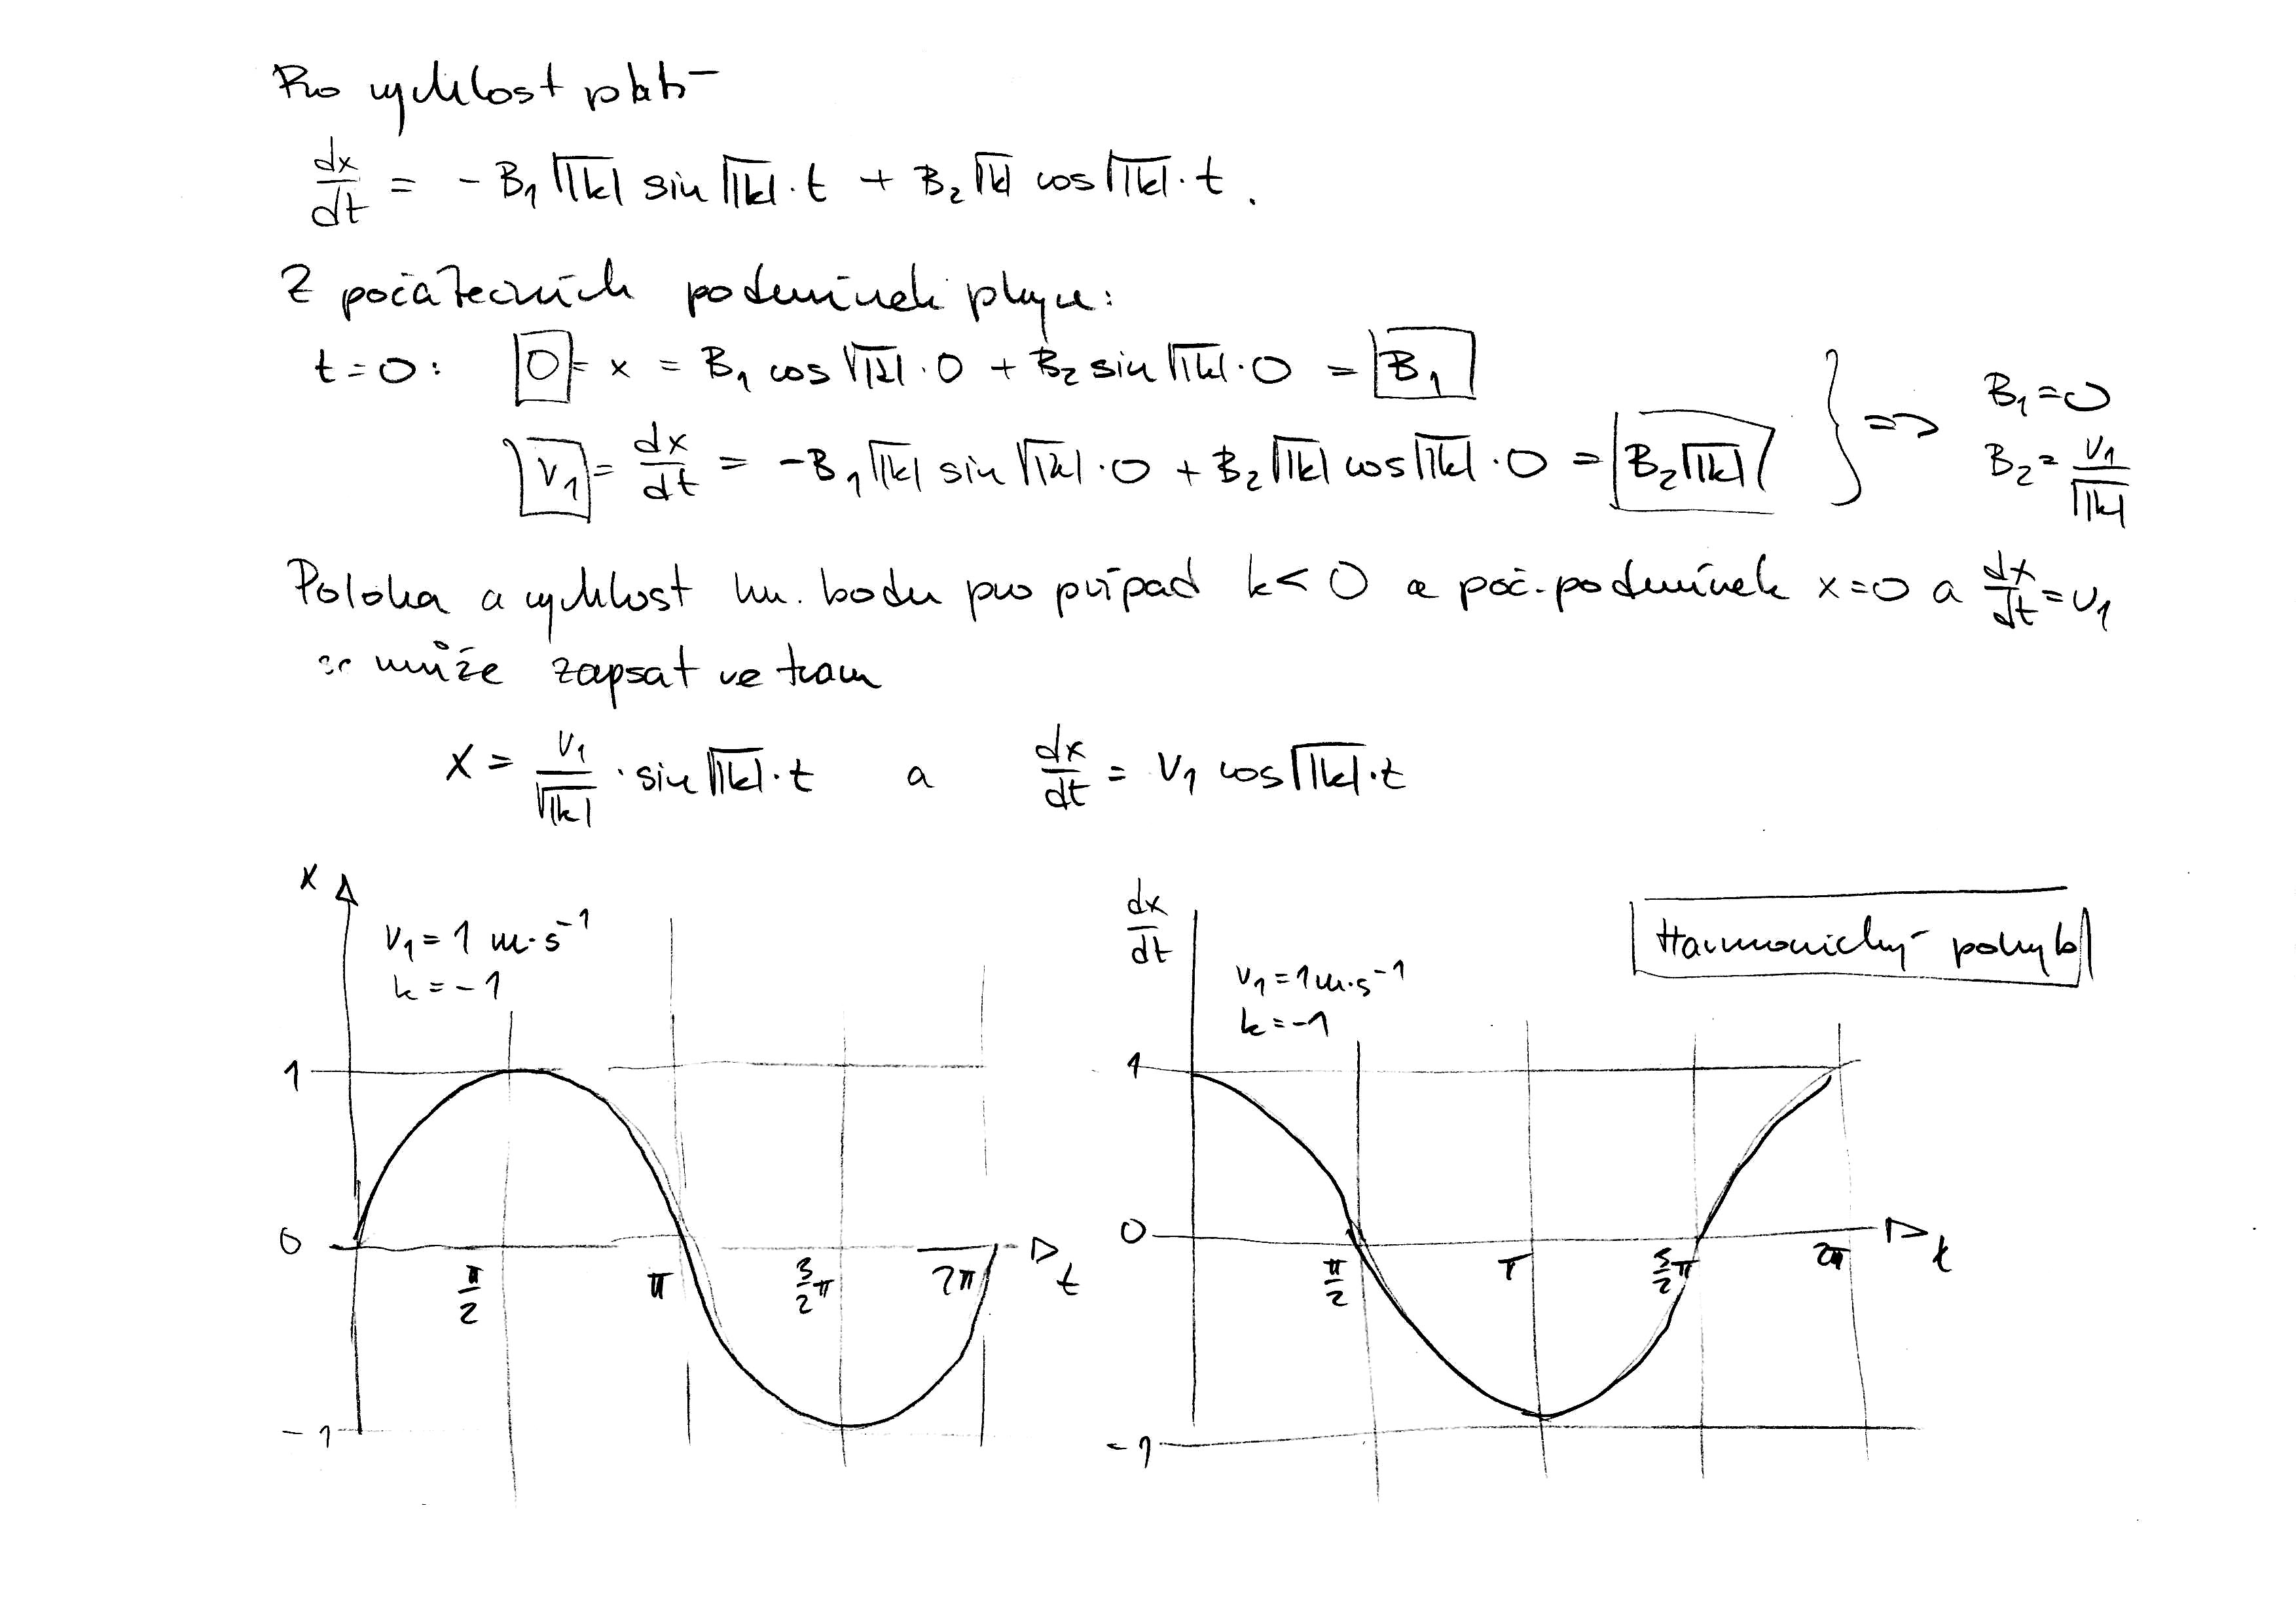 Pro rychlost platí
dx/dt = - B₁ √|k| sin √|k| · t + B₂ √|k| cos √|k| · t .
Z počátečních podmínek plyne:
t = 0 : 0 = x = B₁ cos √|k| · 0 + B₂ sin √|k| · 0 = B₁
v₁ = dx/dt = -B₁ √|k| sin √|k| · 0 + B₂ √|k| cos √|k| · 0 = B₂ √|k| } => B₁ = 0
B₂ = v₁/√|k|
Poloha a rychlost hm. bodu pro případ k < 0 a poč. podmínek x = 0 a dx/dt = v₁
se může zapsat ve tvaru
x = v₁/√|k| · sin √|k| · t a dx/dt = v₁ cos √|k| · t
x
v₁ = 1 m·s⁻¹
k = -1
1
0
-1
π/2
π
3/2 π
2π
t
dx/dt
v₁ = 1 m·s⁻¹
k = -1
1
0
-1
π/2
π
3/2 π
2π
t
Harmonický pohyb